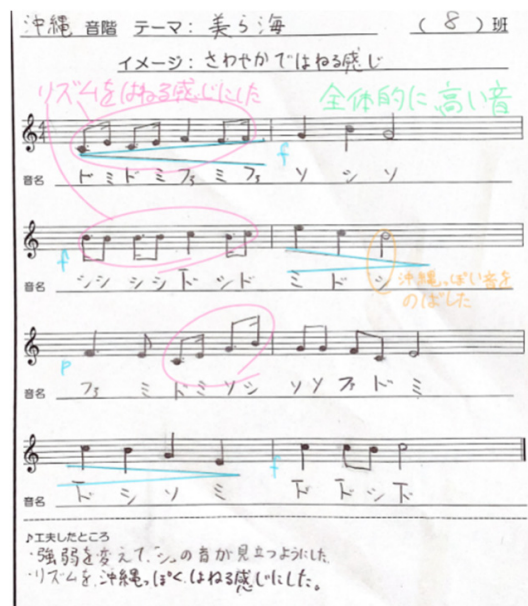 沖縄 音階 テーマ：美ら海 （ 8 ）班
イメージ：さわやかではねる感じ
リズムをはねる感じにした 全体的に高い音
f
音名 ド ミ ド ミ ファ ミ ファ ソ シ ソ
f
音名 シシ シシ ド シド ミ ド シ
沖縄っぽい音を
のばした
p
音名 ファ ミ ド ミ ソ シ ソ ソ ファ ド ミ
f
音名 ド シ ソ ミ ド ド シ ド
♪工夫したところ
・強弱を変えて、シの音が見立つようにした
・リズムを、沖縄っぽく、はねる感じにした。